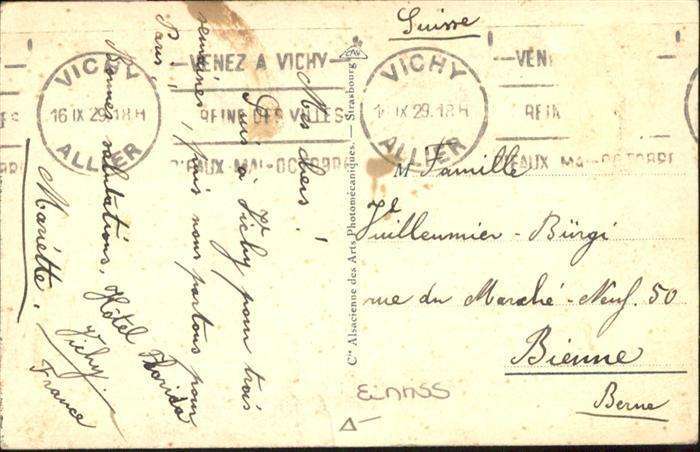 Mes chers !
Suis à Vichy pour trois
semaines, puis nous partons pour
Paris.
Bonnes salutations,
Mariette.
Hôtel Florida
Vichy
France
VICHY
16 IX 29. 18 H
ALLIER
VENEZ A VICHY
REINE DES VILLES
D'EAUX MAI-OCTOBRE
Cie Alsacienne des Arts Photomécaniques. — Strasbourg
VICHY
1 IX 29. 18 H
ALLIER
VEN
REIN
D'EAUX MAI-OCTOBRE
Suisse
Famille
Vuilleumier - Bürgi
rue du Marché-Neuf. 50
Bienne
Berne